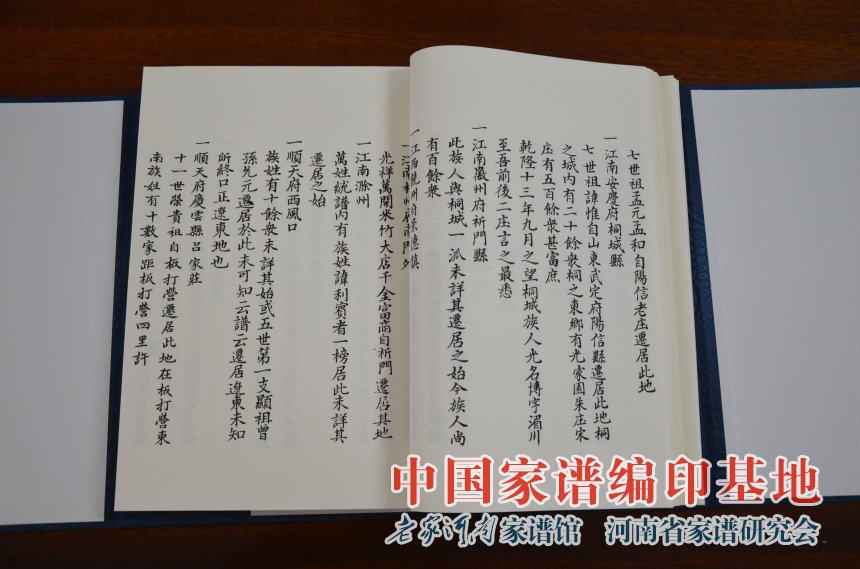 七世祖孟元孟和自陽信老庄遷居此地
一江南安慶府桐城縣
七世祖諱惟自山東武定府陽信縣遷居此地桐
之城内有二十餘衆桐之東鄉有光家園朱庄宋
庄有五百餘衆甚富庶
乾隆十三年九月之望桐城族人光名博字湄川
至吾前後二庄言之最悉
一江南徽州府祈門縣
此族人與桐城一派未詳其遷居之始今族人尚
有百餘衆
一江西饒州府景德鎮
光祥萬開米竹大店千金富高自祈門遷居其地
一江南滁州
萬姓統譜内有族姓諱利賓者一榜居此未詳其
遷居之始
一順天府西風口
族姓有十餘衆未詳其始或五世第一支顯祖曾
孫允元遷居於此未可知云譜云遷居遼東未知
所終口正遼東地也
一順天府慶雲縣呂家莊
十一世榮貴祖自板打營遷居此地在板打營東
南族姓有十數家距板打營四里許
中国家谱编印基地
老家河南家谱馆 河南省家谱研究会